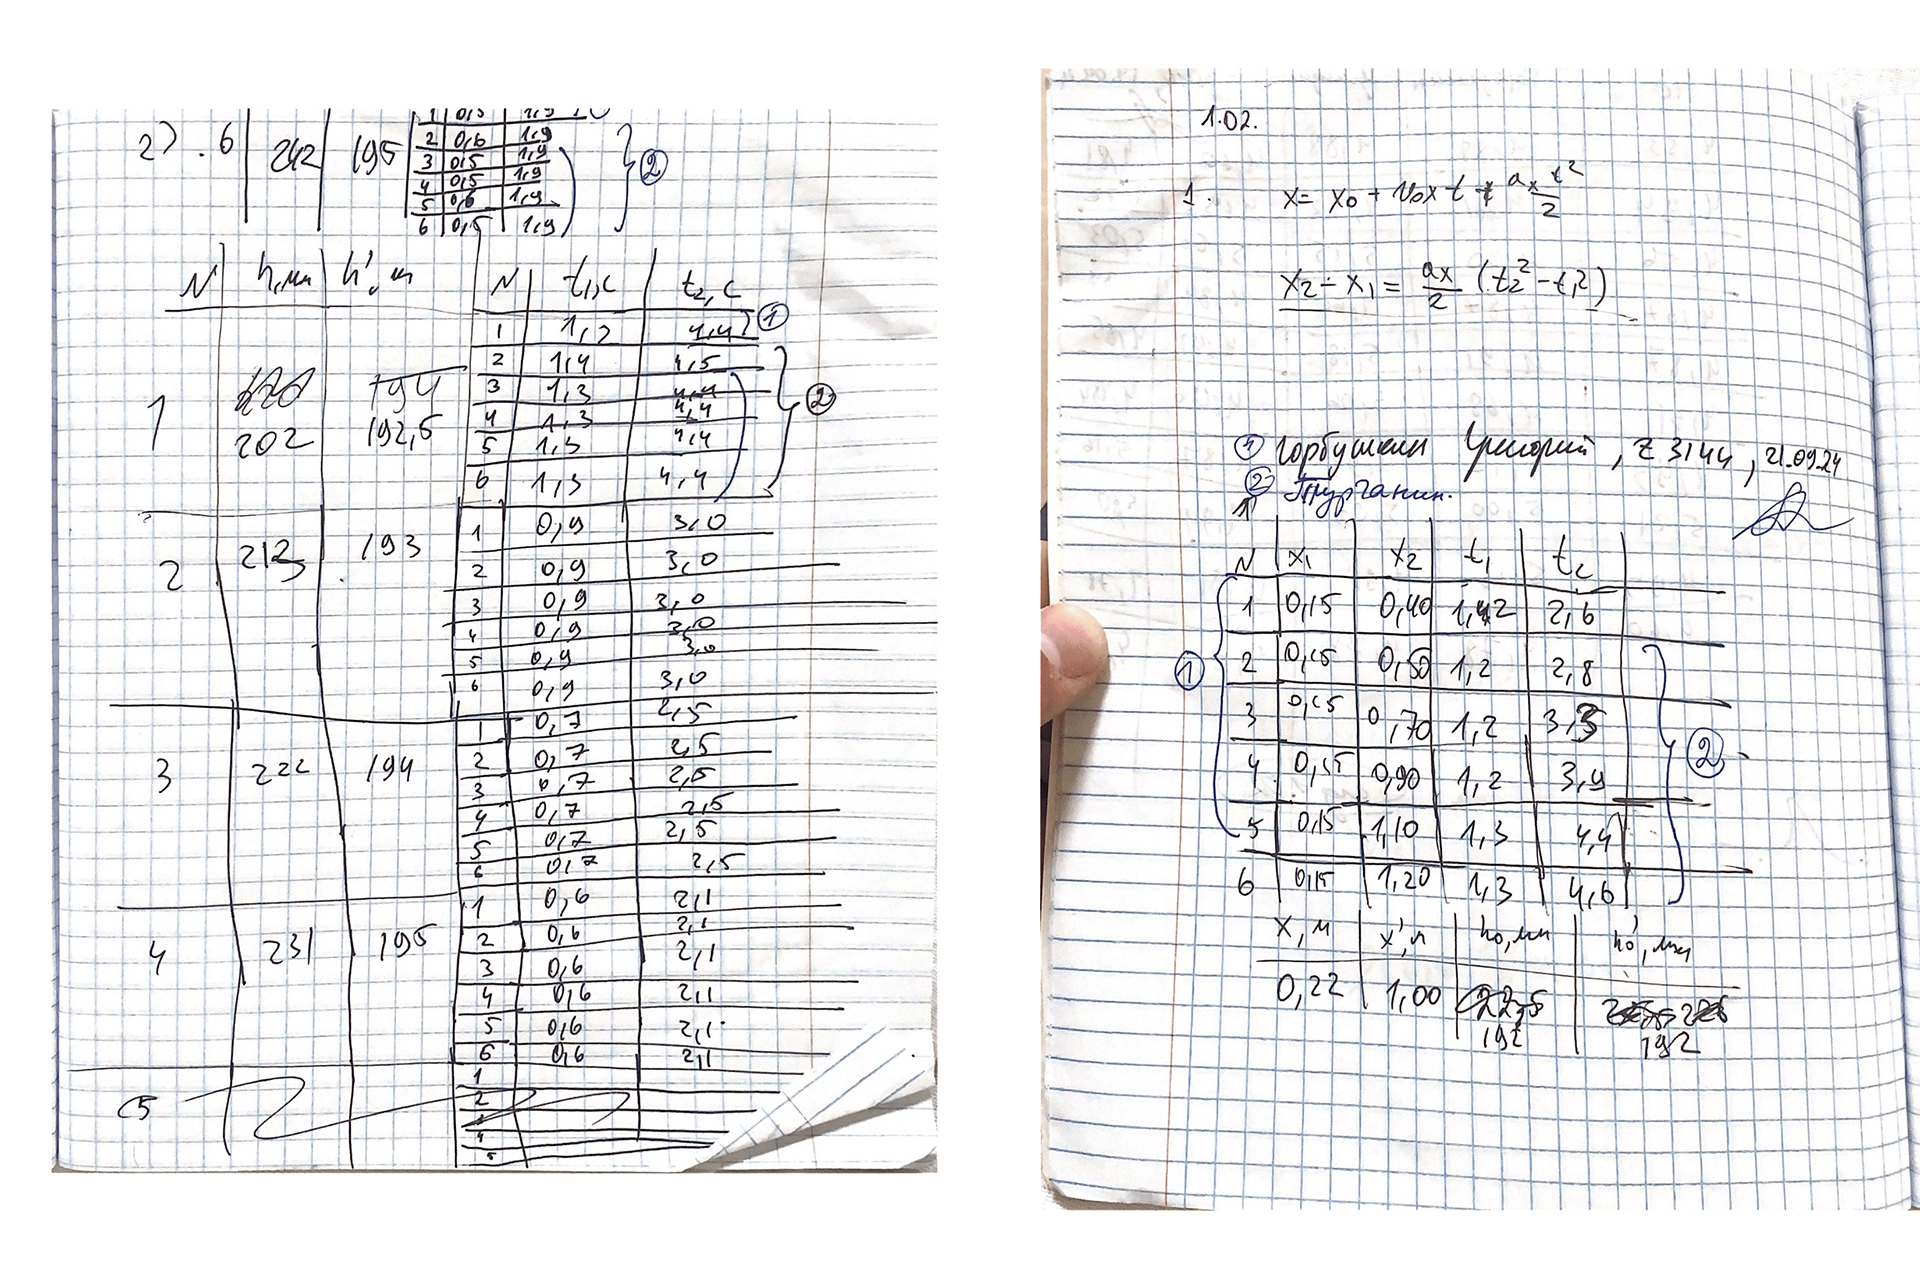 2) . 6 | 242 | 195
1 | 0,5 | 1,9
2 | 0,6 | 1,9
3 | 0,5 | 1,9
4 | 0,5 | 1,9
5 | 0,6 | 1,9
6 | 0,5 | 1,9
②
N | h, мм | h', м | N | t₁, с | t₂, с
1 | 1,2 | 4,4 ①
2 | 1,4 | 4,5
3 | 1,3 | 4,4
1 | 202 | 192,5 | 4 | 1,3 | 4,4 ②
5 | 1,3 | 4,4
6 | 1,3 | 4,4
2 | 213 | 193 | 1 | 0,9 | 3,0
2 | 0,9 | 3,0
3 | 0,9 | 3,0
4 | 0,9 | 3,0
5 | 0,9 | 3,0
6 | 0,9 | 3,0
3 | 222 | 194 | 1 | 0,7 | 2,5
2 | 0,7 | 2,5
3 | 0,7 | 2,5
4 | 0,7 | 2,5
5 | 0,7 | 2,5
6 | 0,7 | 2,5
4 | 231 | 195 | 1 | 0,6 | 2,1
2 | 0,6 | 2,1
3 | 0,6 | 2,1
4 | 0,6 | 2,1
5 | 0,6 | 2,1
6 | 0,6 | 2,1
5 | 1
2
4
5
1.02.
1. x = x₀ + v₀x t + aₓ t²/2
x₂ - x₁ = aₓ/2 (t₂² - t₁²)
① Григорий, Z3144, 21.09.24
②
1
N | x₁ | x₂ | t₁ | t₂
1 | 0,15 | 0,40 | 1,2 | 2,6
2 | 0,15 | 0,50 | 1,2 | 2,8
3 | 0,15 | 0,70 | 1,2 | 3,3
4 | 0,15 | 0,90 | 1,2 | 3,9
5 | 0,15 | 1,10 | 1,3 | 4,4
6 | 0,15 | 1,20 | 1,3 | 4,6
① ②
x, м | x', м | h₀, мм | h₀', мм
0,22 | 1,00 | 192 | 192